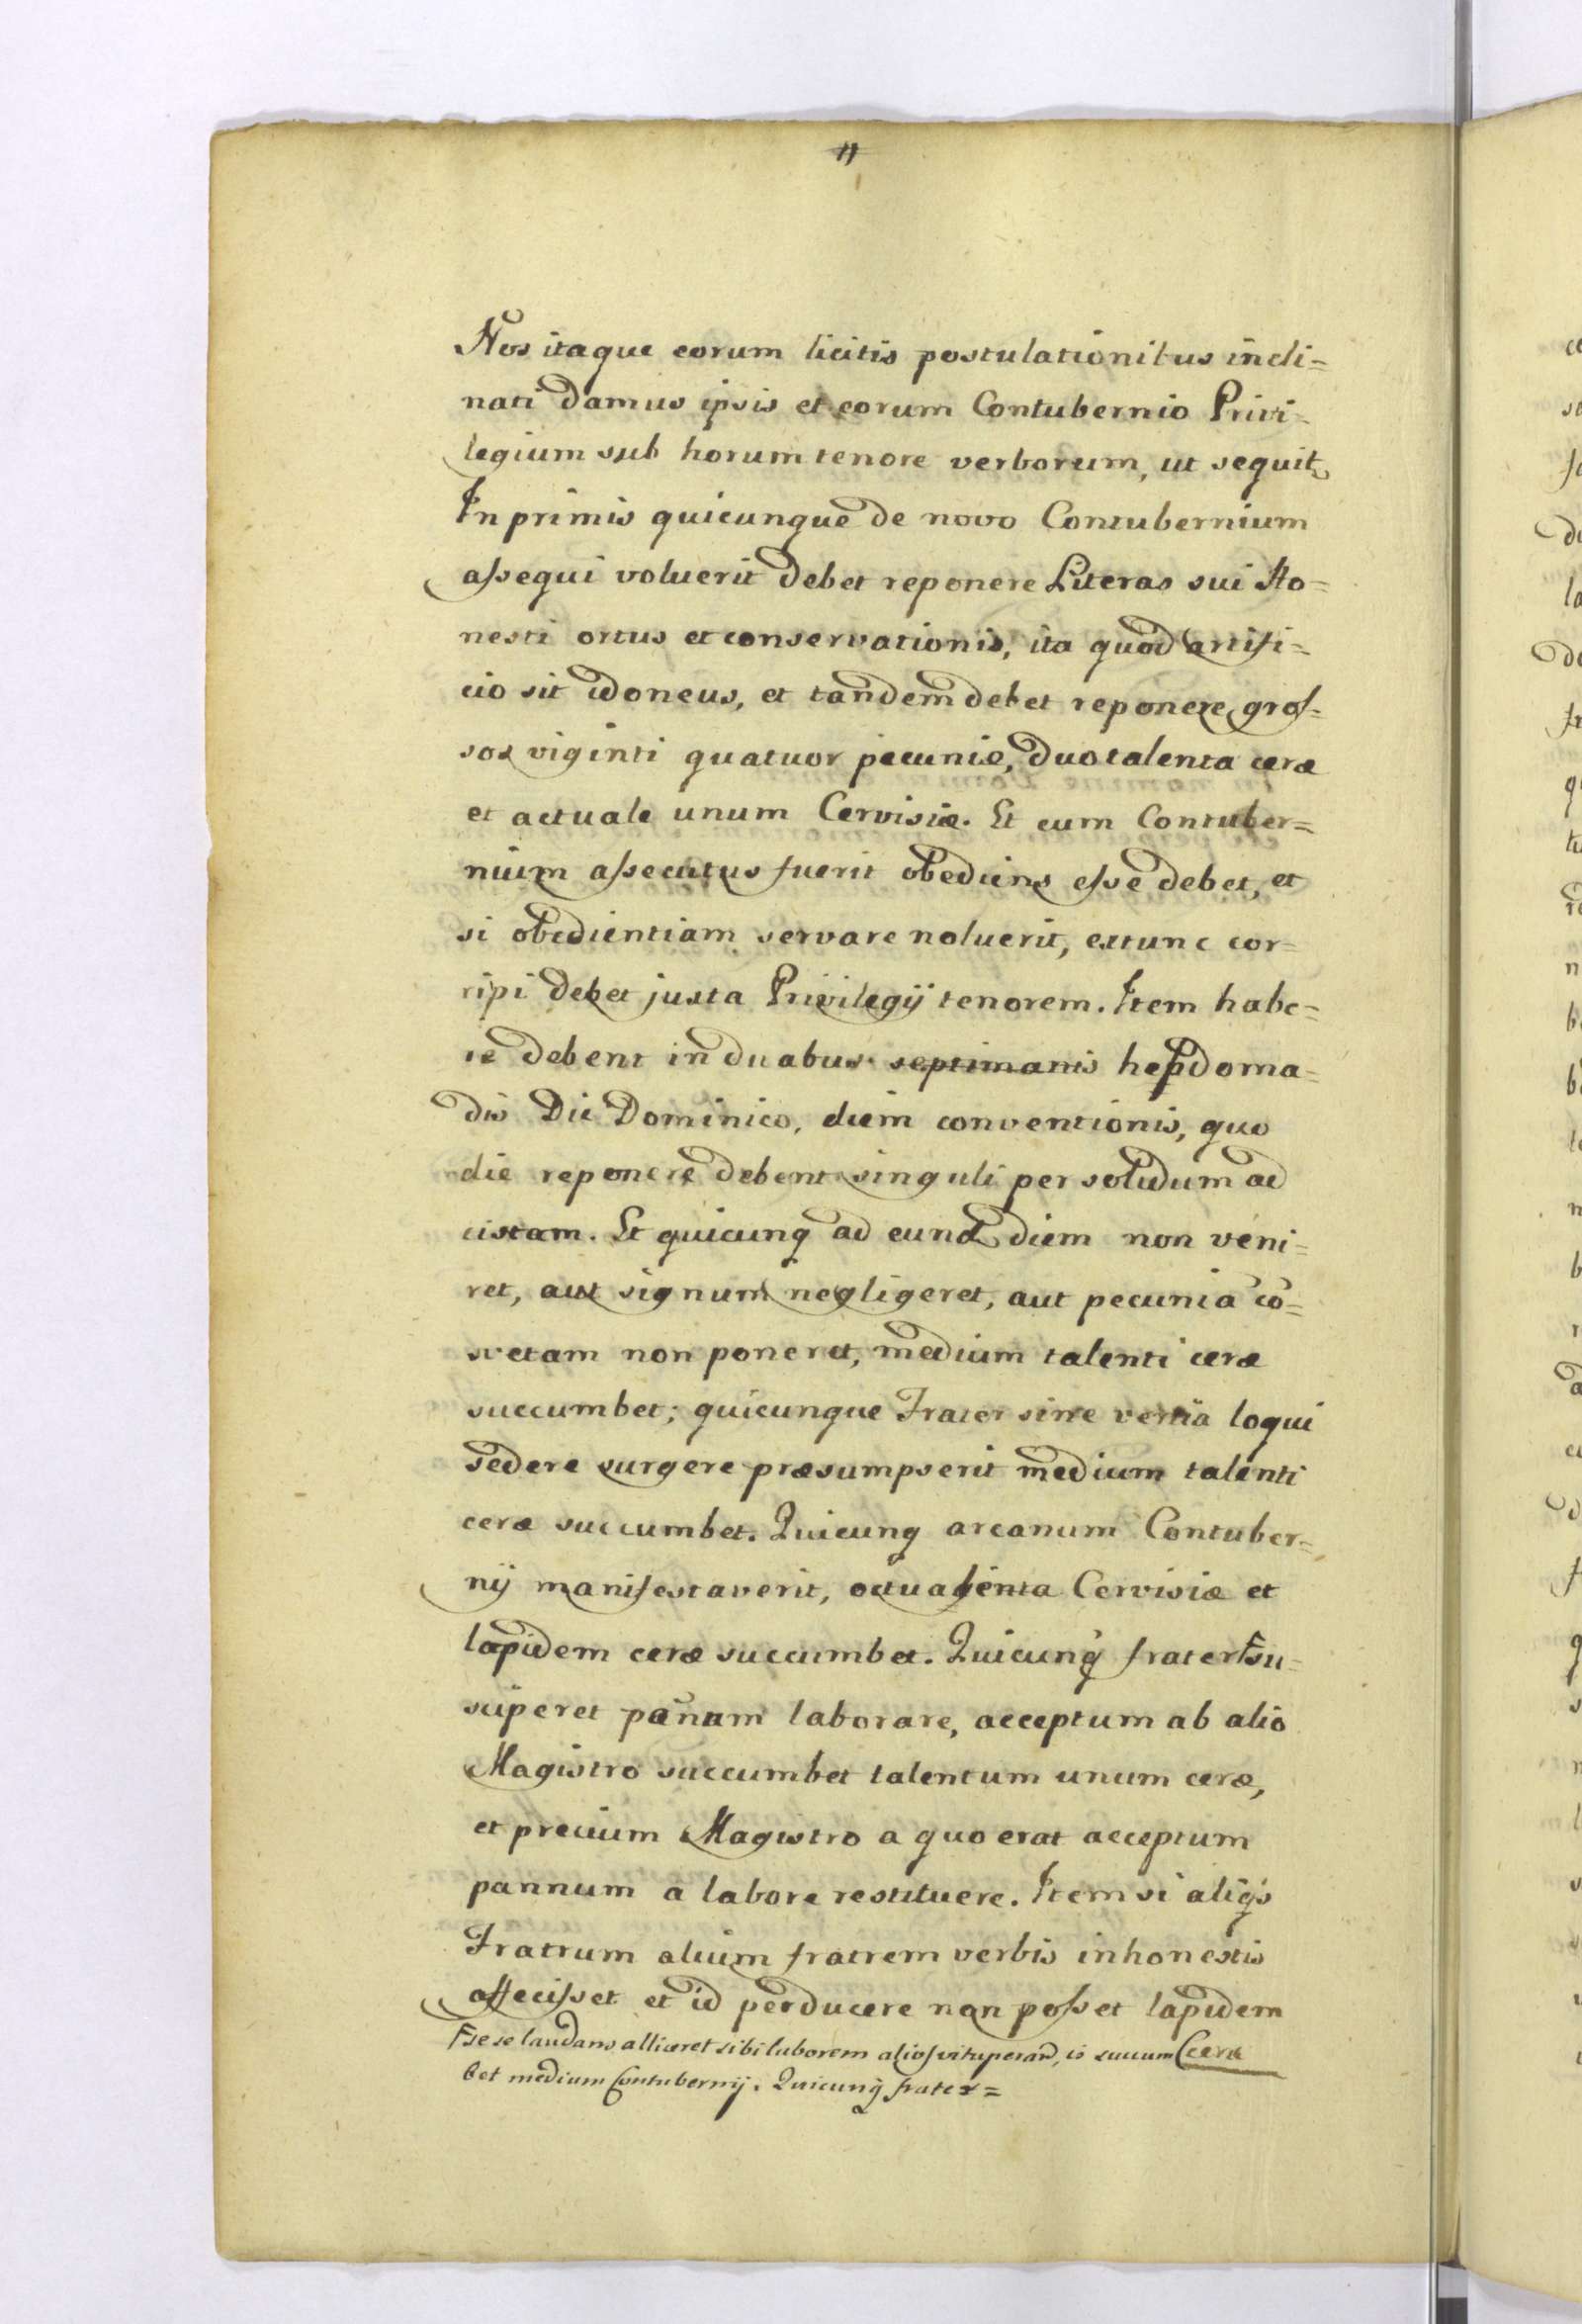 11
Nos itaque eorum licitis postulationibus incli=
nati damus ipsis et eorum Contubernio Privi=
legium sub horum tenore verborum, ut sequit
In primis quicunque de novo Contubernium
assequi voluerit debet reponere Literas sui Ho=
nesti ortus et conservationis, ita quod artifi=
cio sit idoneus, et tandem debet reponere gros=
sos viginti quatuor pecuniæ, duo talenta ceræ
et actuale unum Cervisiæ. Et cum Contuber=
nium assecutus fuerit obediens esse debet, et
si obedientiam servare noluerit, extunc cor=
ripi debet juxta Privilegij tenorem. Item habe=
re debent in duabus septimanis hepdoma=
dis Die Dominico, diem conventionis, quo
die reponere debent singuli per solidum ad
cistam. Et quicunq ad eund diem non veni=
ret, aut signum negligeret, aut pecuniā cō=
svetam non poneret, medium talenti ceræ
succumbet; quicunque Frater sine venia loqui
sedere surgere præsumpserit medium talenti
ceræ succumbet. Quicunq arcanum Contuber=
nij manifestaverit, octualenta Cervisiæ et
lapidem ceræ succumbet. Quicunq frater su=
sciperet panum laborare, acceptum ab alio
Magistro succumbet talentum unum ceræ,
et precium Magistro a quo erat acceptum
pannum a labore restituere. Item si aliq's
Fratrum alium fratrem verbis inhonestis
affecisset et id perducere non posset lapidem
F se se laudans alliceret sibi laborem alios vituperand, is succum
ceræ
bet medium Contubernij. Quicunq frater=